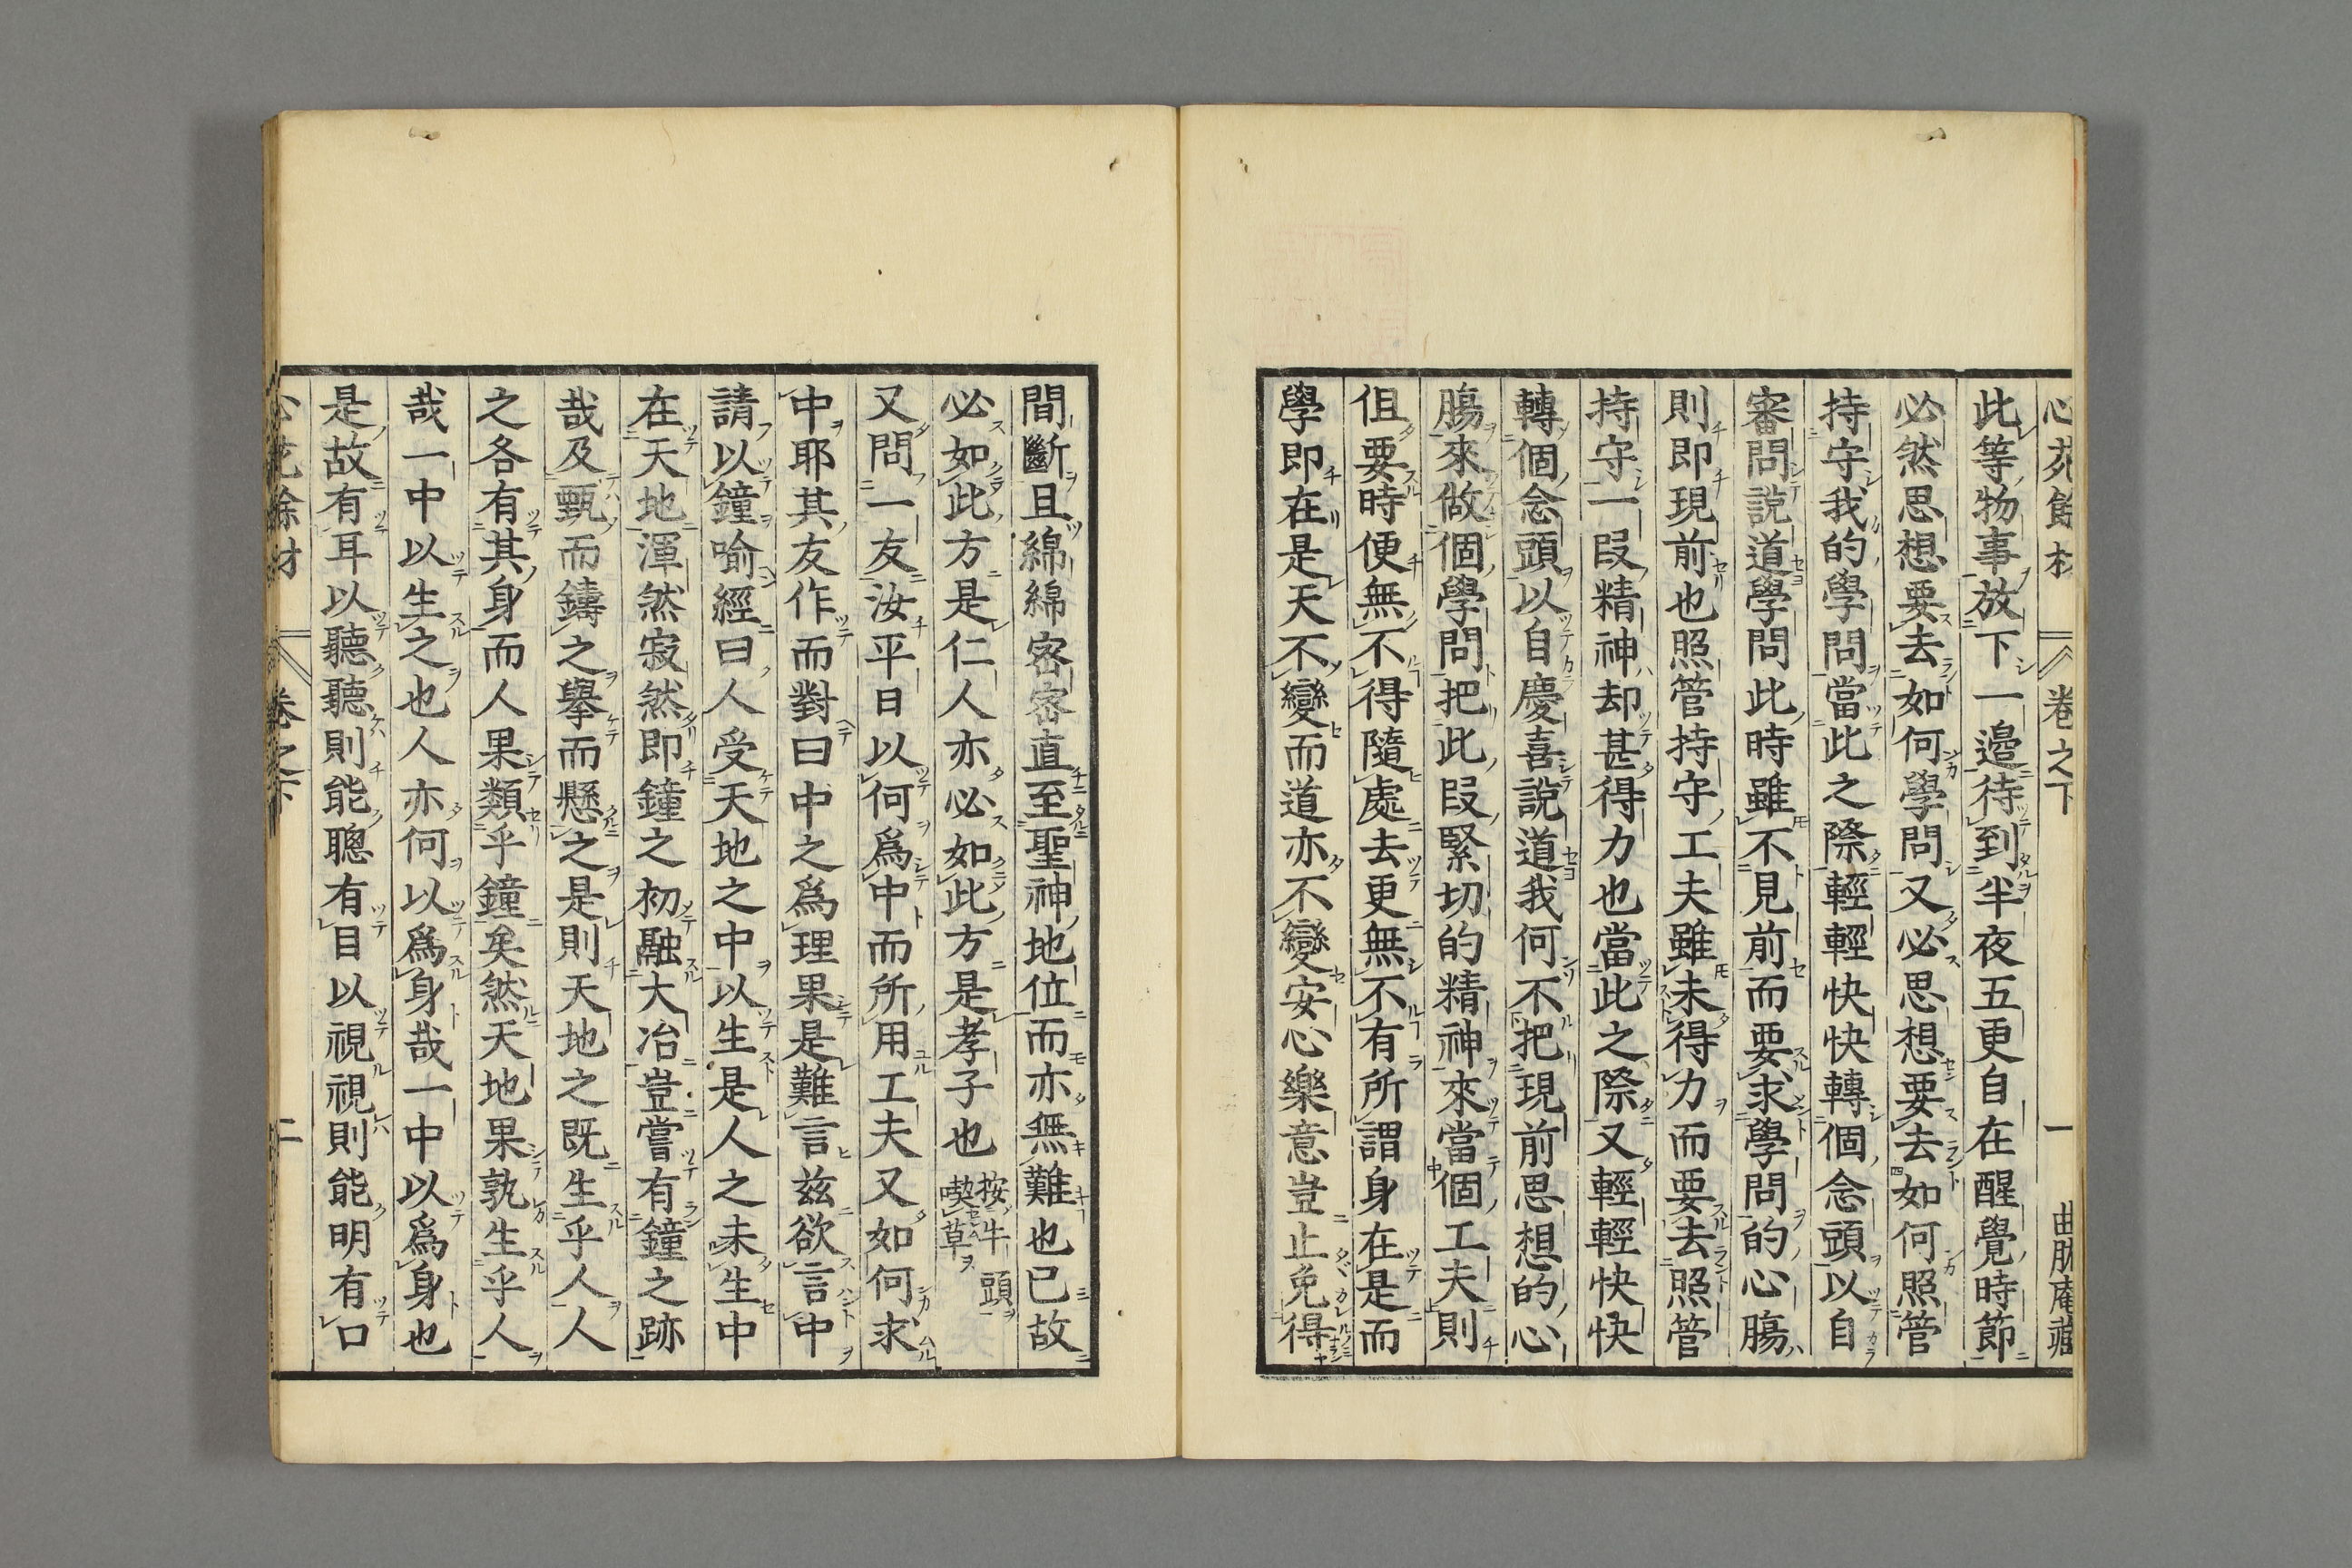 心花餘材 卷之下 一 曲肱庵藏
此等物事放下一邉待到半夜五更自在醒覺時節
必然思想要去如何學問又必思想要去如何照管
持守我的學問當此之際輕輕快快轉個念頭以自
審問說道學問此時雖不見前而要求學問的心膓
則即現前也照管持守工夫雖未得力而要去照管
持守一段精神却甚得力也當此之際又輕輕快快
轉個念頭以自慶喜說道我何不把現前思想的心
膓來做個學問把此段緊切的精神來當個工夫則
但要時便無不得隨處去更無不有所謂身在是而
學即在是天不變而道亦不變安心樂意豈止免得
間斷且綿綿密密直至聖神地位而亦無難也已故
必如此方是仁人亦必如此方是孝子也 按牛頭喫草
又問一友汝平日以何爲中而所用工夫又如何求
中耶其友作而對曰中之爲理果是難言兹欲言中
請以鐘喻經曰人受天地之中以生是人之未生中
在天地渾然寂然即鐘之初融大冶豈嘗有鐘之跡
哉及甄而鑄之擧而懸之是則天地之既生乎人人
之各有其身而人果類乎鐘矣然天地果孰生乎人
哉一中以生之也人亦何以爲身哉一中以爲身也
是故有耳以聽聽則能聰有目以視視則能明有口
心花餘材 卷之下 二